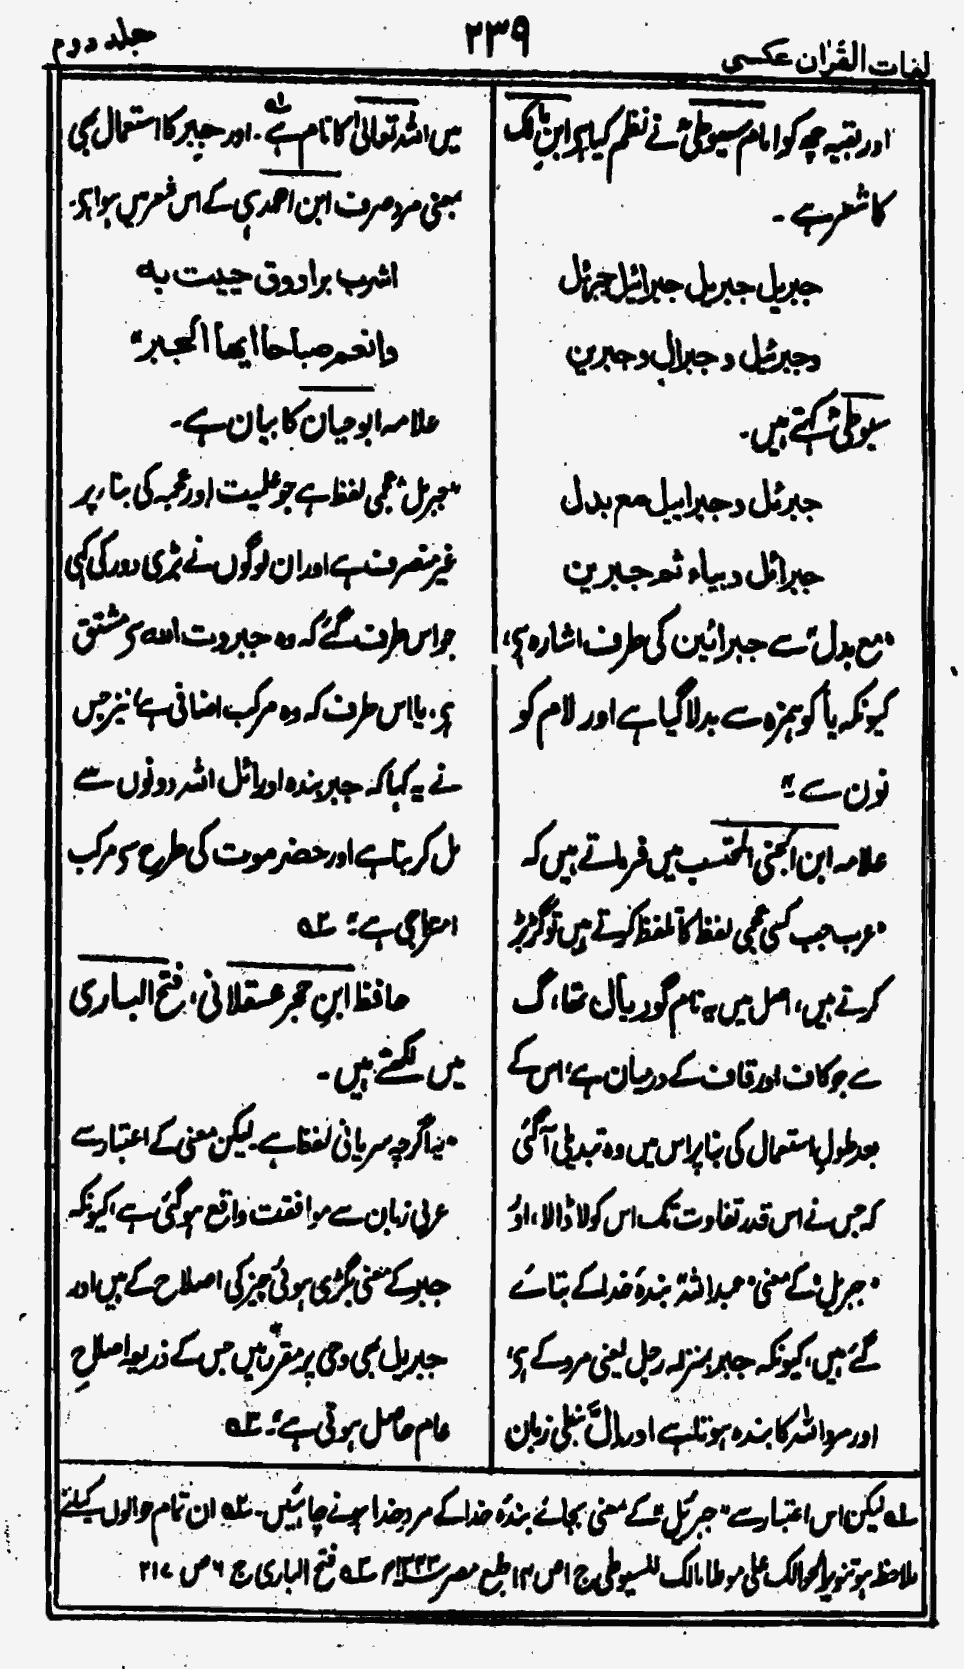 لغات القرآن عکسی
۲۳۹
جلد دوم
اور بقیہ چھ کو امام سیوطیؒ نے نظم کیا ہے ابنِ مالک
کا شعر ہے ۔
جبریل جبریل جبرائیل جبرئل
وجبرئیل و جبرال وجبرین
سیوطیؒ کہتے ہیں۔
جبرئل وجبراییل مع بدل
جبرائل وبیاء ثم جبرین
"مع بدل" سے جبرائین کی طرف اشارہ ہے،
کیونکہ یا کو ہمزہ سے بدلا گیا ہے اور لام کو
نون سے"
علامہ ابن الجنی المحتسب میں فرماتے ہیں کہ
"عرب جب کسی عجمی لفظ کا تلفظ کرتے ہیں تو گڑبڑ
کرتے ہیں، اصل میں یہ نام گوریال تھا، گ
سے جو کاف اور قاف کے درمیان ہے، اس کے
بعد طولِ استعمال کی بنا پر اس میں وہ تبدیلی آگئی
کہ جس نے اس قدر تفاوت تک اس کو لا ڈالا، اوُ
"جبریل" کے معنی "عبداللہ" بندۂ خدا کے بتائے
گئے ہیں، کیونکہ جبر بمنزلہ رجل یعنی مرد کے ہے،
اور مرد اللہ کا بندہ ہوتا ہے اور ِالّ نبطی زبان
میں اللہ تعالیٰ کا نام ہے ۱ھ ۔ اور جبر کا استعمال بھی
بمعنی مرد صرف ابن احمد ہی کے اس شعر میں ہوا ہے۔
اشرب براووق حییت بہ
وانعم صباحا ایھا الجبر"
علامہ ابوحیان کا بیان ہے۔
"جبریل" عجمی لفظ ہے جو علمیت اور عجمہ کی بناء پر
غیر منصرف ہے اور ان لوگوں نے بڑی دور کی کہی
جو اس طرف گئے کہ وہ جبروت اللہ سے مشتق
ہے، یا اس طرف کہ وہ مرکب اضافی ہے، نیز جس
نے یہ کہا کہ جبر بندہ اور ائل اللہ دونوں سے
مل کر بنا ہے اور حضرموت کی طرح سے مرکب
امتزاجی ہے" ۲ھ
حافظ ابنِ حجر عسقلانی، فتح الباری
میں لکھتے ہیں ۔
"یہ اگرچہ سریانی لفظ ہے۔ لیکن معنی کے اعتبار سے
عربی زبان سے موافقت واقع ہوگئی ہے، کیونکہ
جبر کے معنی بگڑی ہوئی چیز کی اصلاح کے ہیں اور
جبریل بھی وحی پر مقرر ہیں جس کے ذریعہ اصلاحِ
عام حاصل ہوتی ہے"۔ ۳ھ
۱ھ لیکن اس اعتبار سے "جبرئیل" کے معنی بجائے بندۂ خدا کے مردِ خدا ہونے چاہئیں۔ ۲ھ ان تمام حوالوں کیلئے
ملاحظہ ہو تنویر الحوالک علی موطا مالک للسیوطی ج ۱ ص ۱۴ طبع مصر ۱۳۴۳ھ ۳ھ فتح الباری ج ۶ ص ۲۱۷